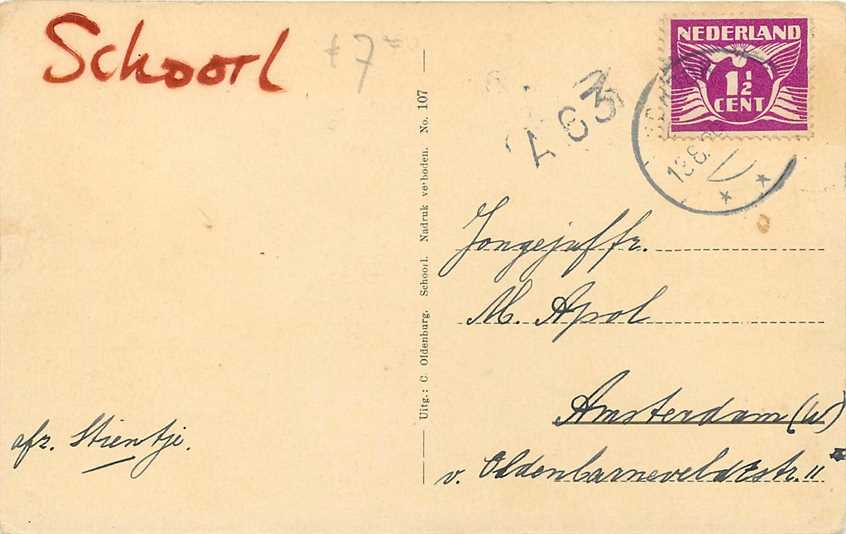 Schoorl
7
Uitg.: C. Oldenburg. Schoorl. Nadruk verboden. No. 107
A 63
NEDERLAND
1½
CENT
13.8.
Jongejuffr.
M. Apol
Amsterdam (W)
v. Oldenbarneveldtstr. 11
afz. Stientje.